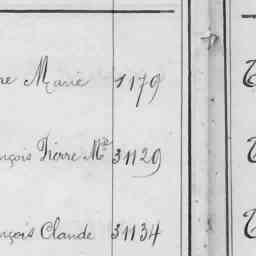 ne Marie 1179
nçois Pierre Mie 31129
nçois Claude 31134